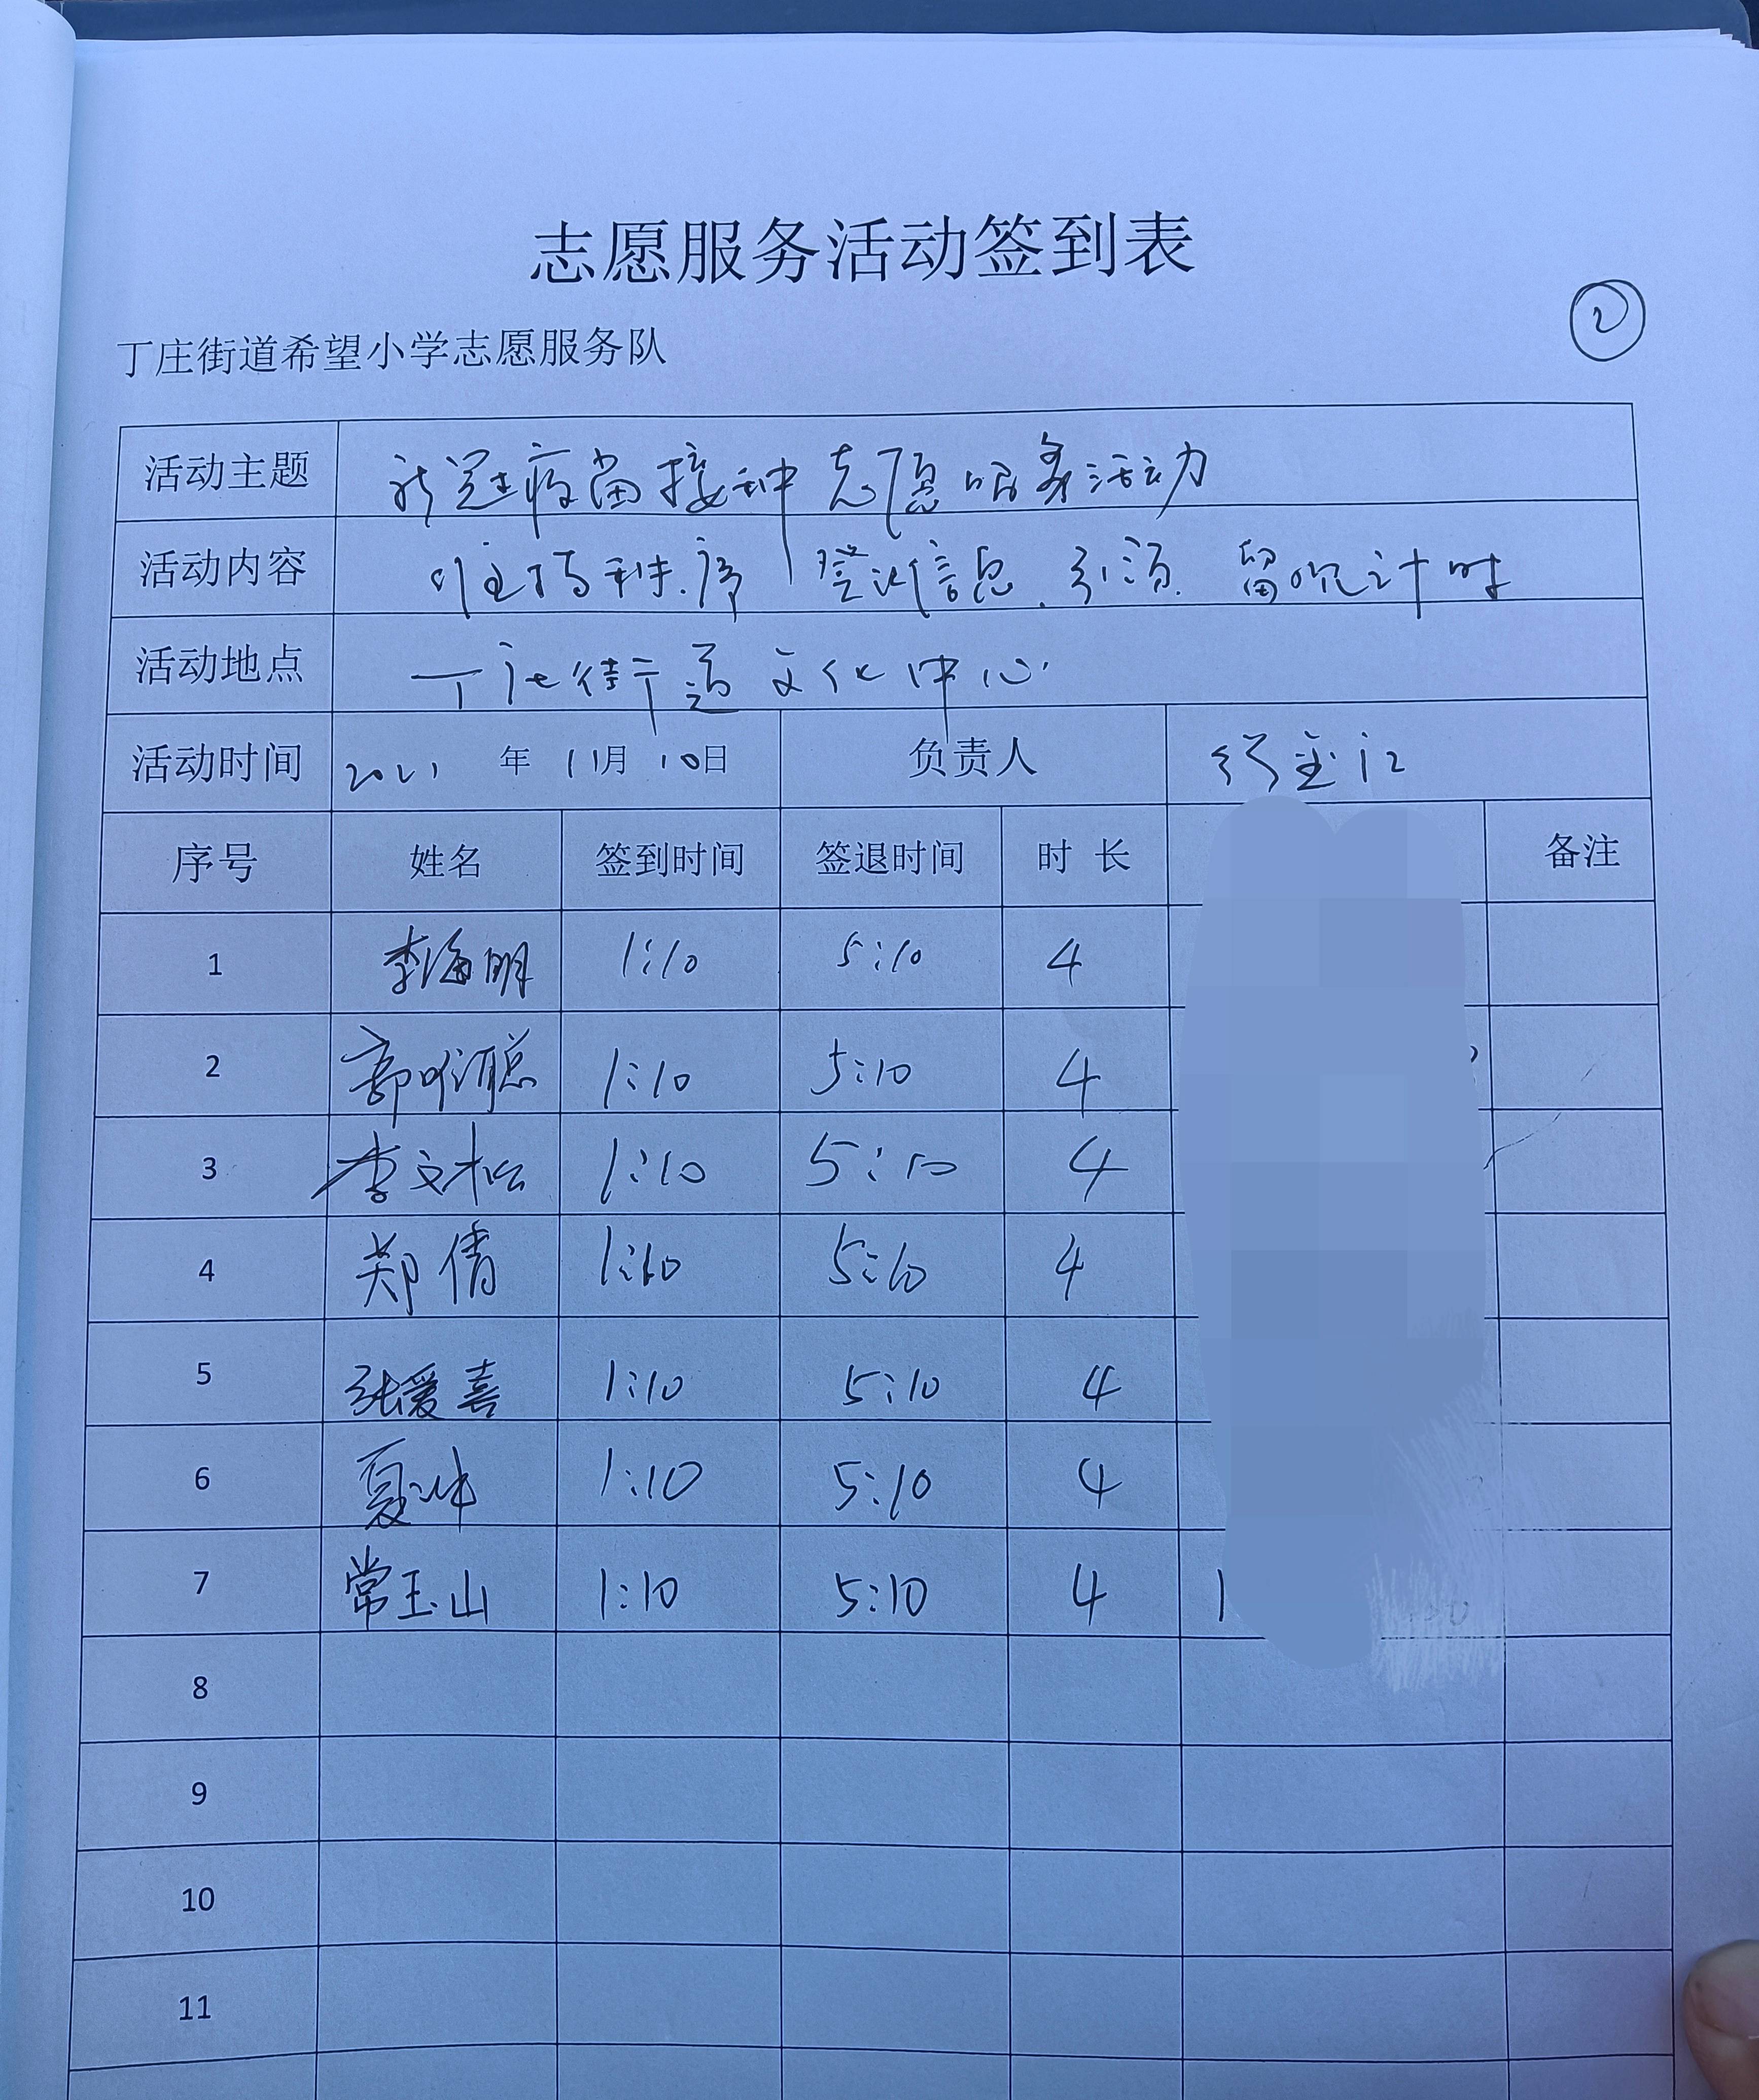 志愿服务活动签到表
②
丁庄街道希望小学志愿服务队
活动主题 新冠疫苗接种志愿服务活动
活动内容 维持秩序 登记信息、引领、留观计时
活动地点 丁庄街道文化中心
活动时间 2021 年 11月 10日 负责人
序号 姓名 签到时间 签退时间 时 长 备注
1 李海明 1:10 5:10 4
2 郭 聪 1:10 5:10 4
3 李文松 1:10 5:10 4
4 郑倩 1:10 5:10 4
5 张爱喜 1:10 5:10 4
6 夏 1:10 5:10 4
7 常玉山 1:10 5:10 4 1
8
9
10
11